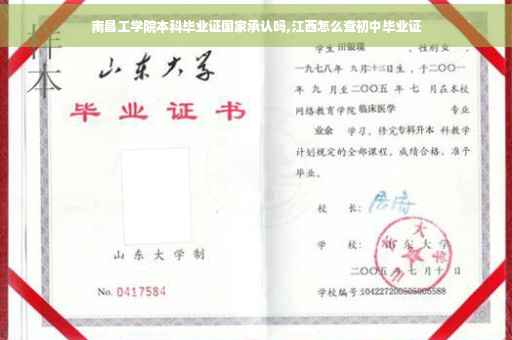 南昌工学院本科毕业证国家承认吗,江西怎么查初中毕业证
样本
山东大学
毕业证书
山东大学制
No. 0417584
学生 田俊瑛 ,性别 女 ,
一九七八年 九月十三日生,于二〇〇一
年 九 月至二〇〇五 年 七 月在本校
网络教育学院 临床医学 专业
业余 学习,修完专科升本 科教学
计划规定的全部课程,成绩合格,准予
毕业。
校 长:
学 校: 山东大学
二〇〇五 年 七 月 十 日
学校编号:104227200505005588